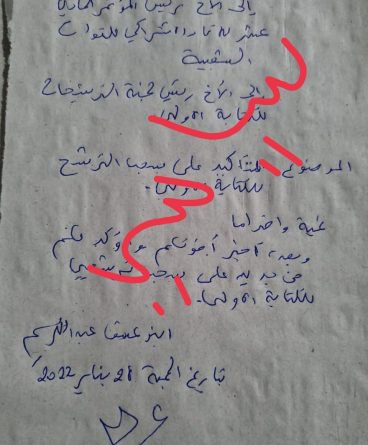 إلى الأخ رئيس المؤتمر الحادي
عشر للاتحاد الاشتراكي للقوات
الشعبية
إلى الأخ رئيس لجنة الترشيحات
للكتابة الأولى
الموضوع: التأكيد على سحب الترشح
للكتابة الأولى.
تحية واحتراما
وبعد، أخبر أخوتكم وأؤكد لكم
من جديد على سحب ترشيحي
للكتابة الأولى.
عبد الكريم
بتاريخ الجمعة 28 يناير 2022